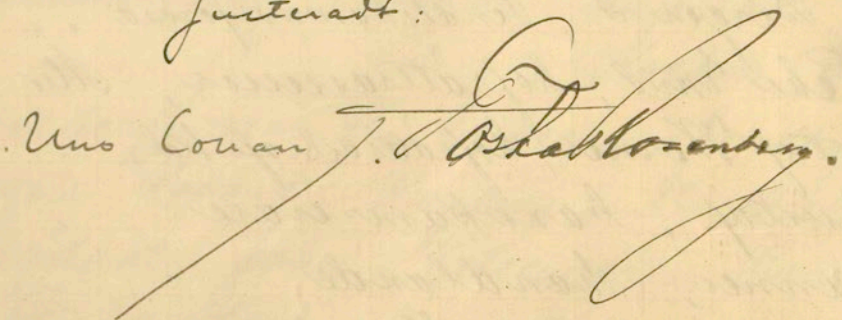 Justeradt:
Uno Conan J. Oskar Rosenberg.